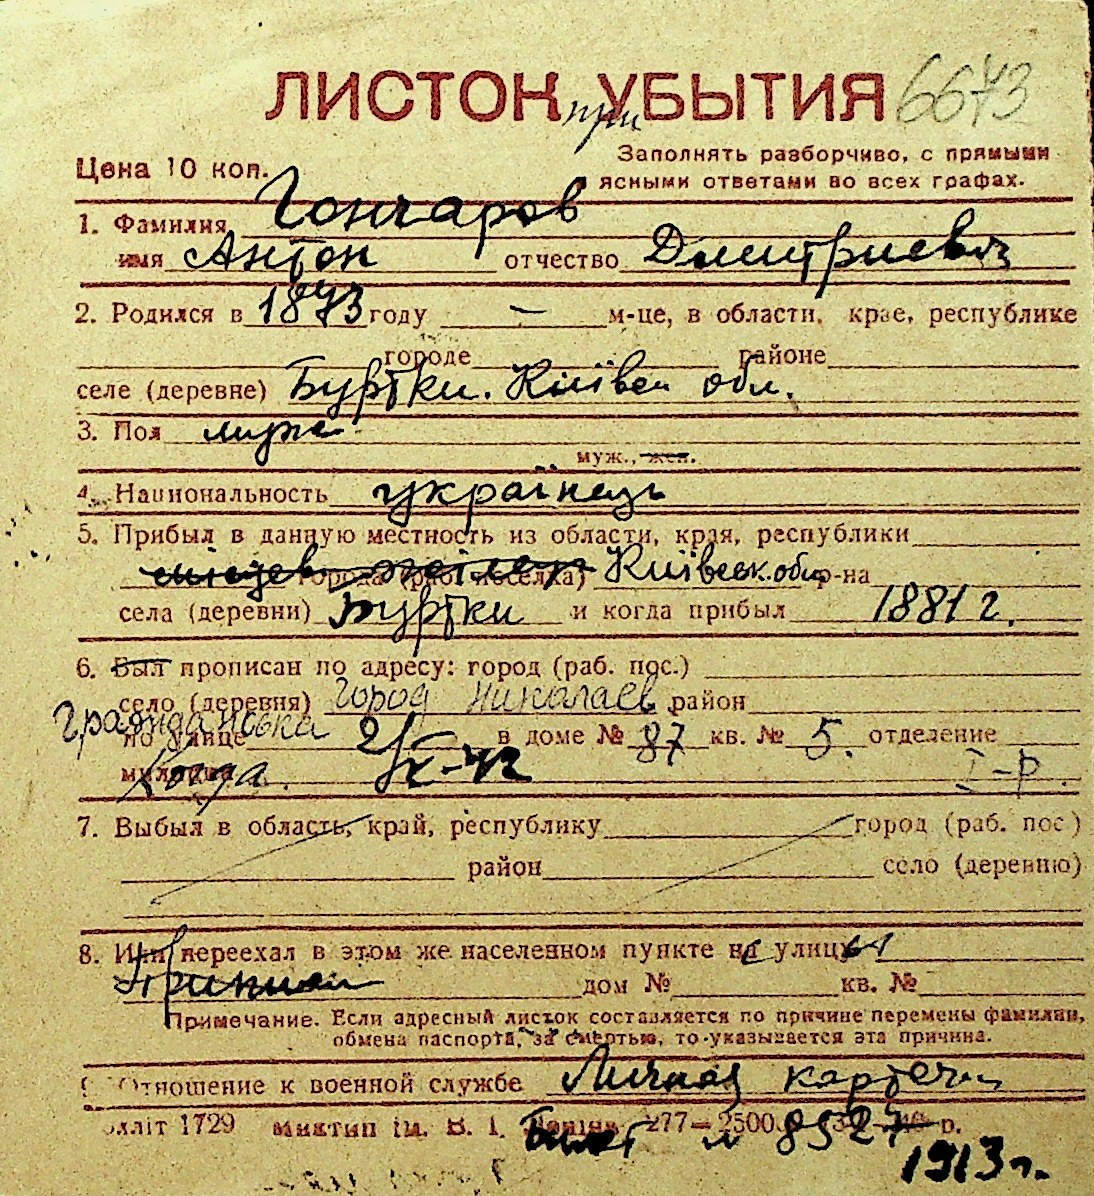 ЛИСТОК при УБЫТИЯ 6673
Цена 10 коп.
Заполнять разборчиво, с прямыми
и ясными ответами во всех графах.
1. Фамилия Гончаров
имя Антон отчество Дмитриевич
2. Родился в 1873 году — м-це, в области, крае, республике
городе районе
селе (деревне) Буртки. Київск обл.
3. Пол муж
муж., жен.
4. Национальность українець
5. Прибыл в данную местность из области, края, республики
города (раб. поселка) Київск. обл р-на
села (деревни) Буртки и когда прибыл 1881 г.
6. Был прописан по адресу: город (раб. пос.)
село (деревня) город Николаев район
по улице Гражданська 2/X-42 в доме № 87 кв. № 5. отделение
милиции Когда. I-р.
7. Выбыл в область, край, республику город (раб. пос)
район село (деревню)
8. Или переехал в этом же населенном пункте на улицу
дом № кв. №
Примечание. Если адресный листок составляется по причине перемены фамилии,
обмена паспорта, за смертью, то указывается эта причина.
9. Отношение к военной службе Личная карточка
лліт 1729 Миктип ім. В. І. Леніна 277—2500. р.
Билет № 8527
1913 г.